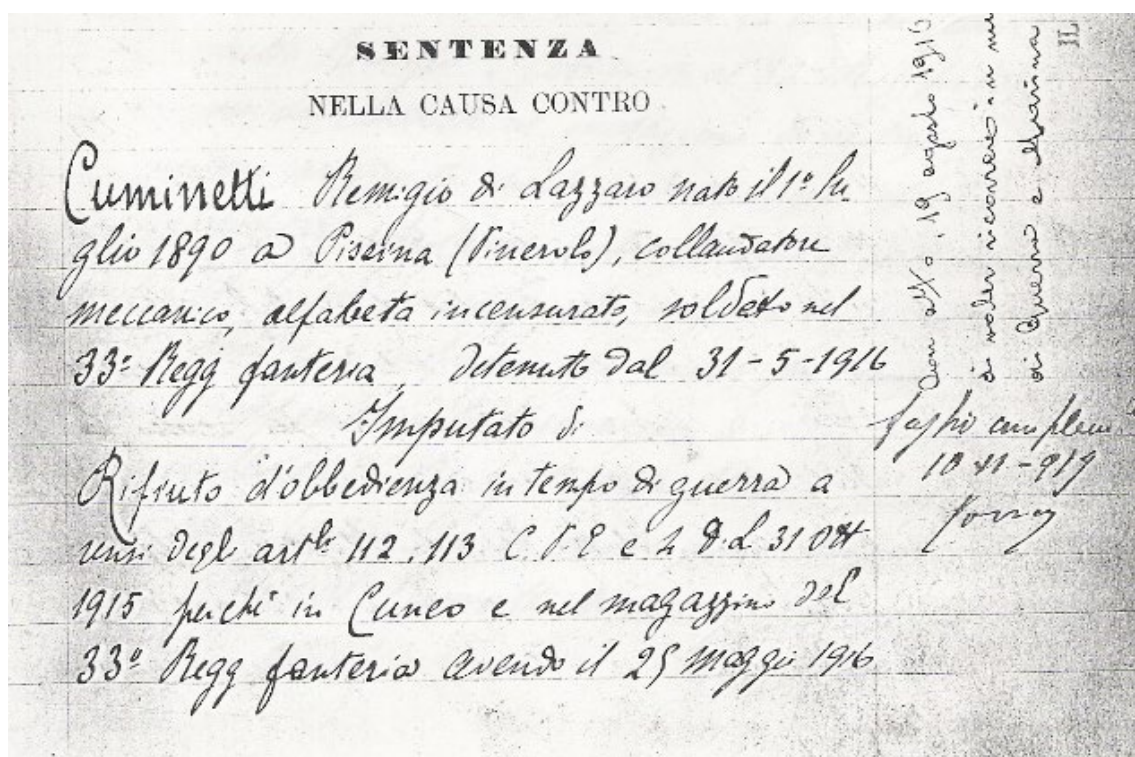 SENTENZA
NELLA CAUSA CONTRO
Cuminetti Remigio di Lazzaro nato il 1º lu
glio 1890 a Piscina (Pinerolo), collaudatore
meccanico, alfabeta incensurato, soldato nel
33º Regg fanteria, detenuto dal 31-5-1916
Imputato di
Rifiuto d'obbedienza in tempo di guerra a
sensi degli artli 112, 113 C.P.E e 2 D.L 31 Ott
1915 perchè in Cuneo e nel magazzino del
33º Regg fanteria avendo il 25 Maggio 1916
19 agosto 1916
di voler ricorrere in
di Guerra e Marina
IL